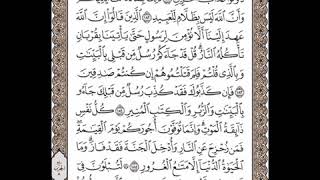 وَأَنَّ ٱللَّهَ لَيْسَ بِظَلَّامٍ لِّلْعَبِيدِ ١٨٢ ٱلَّذِينَ قَالُوٓا۟ إِنَّ ٱللَّهَ
عَهِدَ إِلَيْنَآ أَلَّا نُؤْمِنَ لِرَسُولٍ حَتَّىٰ يَأْتِيَنَا بِقُرْبَانٍ
تَأْكُلُهُ ٱلنَّارُ قُلْ قَدْ جَآءَكُمْ رُسُلٌ مِّن قَبْلِى بِٱلْبَيِّنَٰتِ
وَبِٱلَّذِى قُلْتُمْ فَلِمَ قَتَلْتُمُوهُمْ إِن كُنتُمْ صَٰدِقِينَ
١٨٣ فَإِن كَذَّبُوكَ فَقَدْ كُذِّبَ رُسُلٌ مِّن قَبْلِكَ جَآءُو
بِٱلْبَيِّنَٰتِ وَٱلزُّبُرِ وَٱلْكِتَٰبِ ٱلْمُنِيرِ ١٨٤ كُلُّ نَفْسٍ
ذَآئِقَةُ ٱلْمَوْتِ وَإِنَّمَا تُوَفَّوْنَ أُجُورَكُمْ يَوْمَ ٱلْقِيَٰمَةِ
فَمَن زُحْزِحَ عَنِ ٱلنَّارِ وَأُدْخِلَ ٱلْجَنَّةَ فَقَدْ فَازَ وَمَا
ٱلْحَيَوٰةُ ٱلدُّنْيَآ إِلَّا مَتَٰعُ ٱلْغُرُورِ ١٨٥ لَتُبْلَوُنَّ فِىٓ